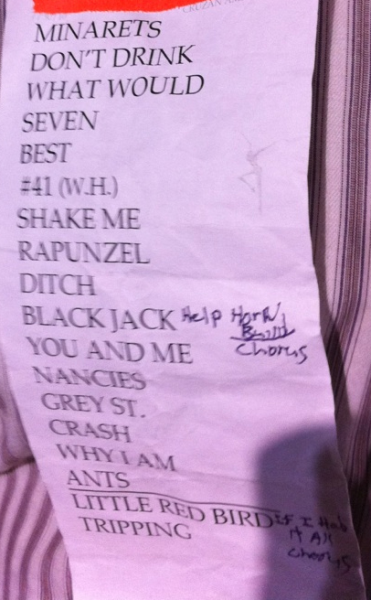 MINARETS
DON'T DRINK
WHAT WOULD
SEVEN
BEST
#41 (W.H.)
SHAKE ME
RAPUNZEL
DITCH
BLACK JACK Help Horn
Build
YOU AND ME Chorus
NANCIES
GREY ST.
CRASH
WHY I AM
ANTS
LITTLE RED BIRD IF I Had
TRIPPING It All
Chorus